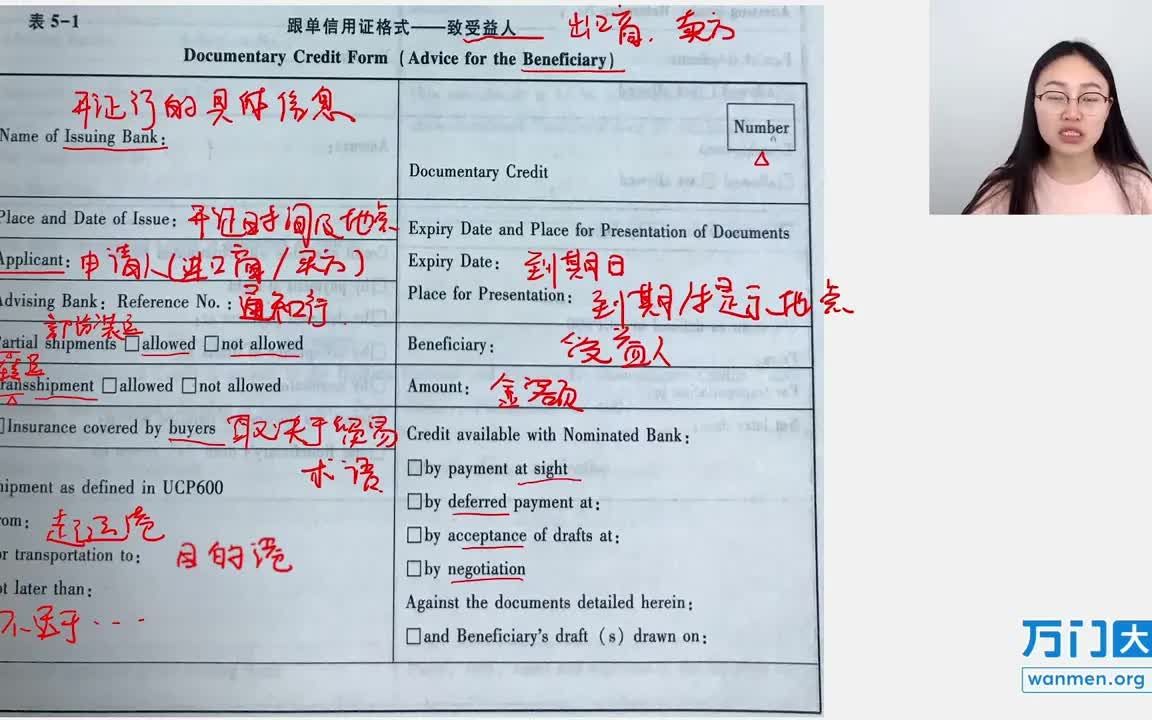 表 5-1
跟单信用证格式——致受益人 出口商、卖方
Documentary Credit Form (Advice for the Beneficiary)
开证行的具体信息
Name of Issuing Bank:
Number
Documentary Credit
Place and Date of Issue: 开证时间及地点
Expiry Date and Place for Presentation of Documents
Applicant: 申请人(进口商/买方)
Expiry Date: 到期日
Advising Bank: Reference No.: 通知行
Place for Presentation: 到期后提示地点
部份装运
artial shipments □allowed □not allowed
Beneficiary: 受益人
转运
ransshipment □allowed □not allowed
Amount: 金额
□Insurance covered by buyers 取决于贸易
术语
Credit available with Nominated Bank:
□by payment at sight
hipment as defined in UCP600
□by deferred payment at:
rom: 起运港
□by acceptance of drafts at:
or transportation to: 目的港
□by negotiation
ot later than:
Against the documents detailed herein:
不迟于...
□and Beneficiary's draft (s) drawn on:
万门大
wanmen.org